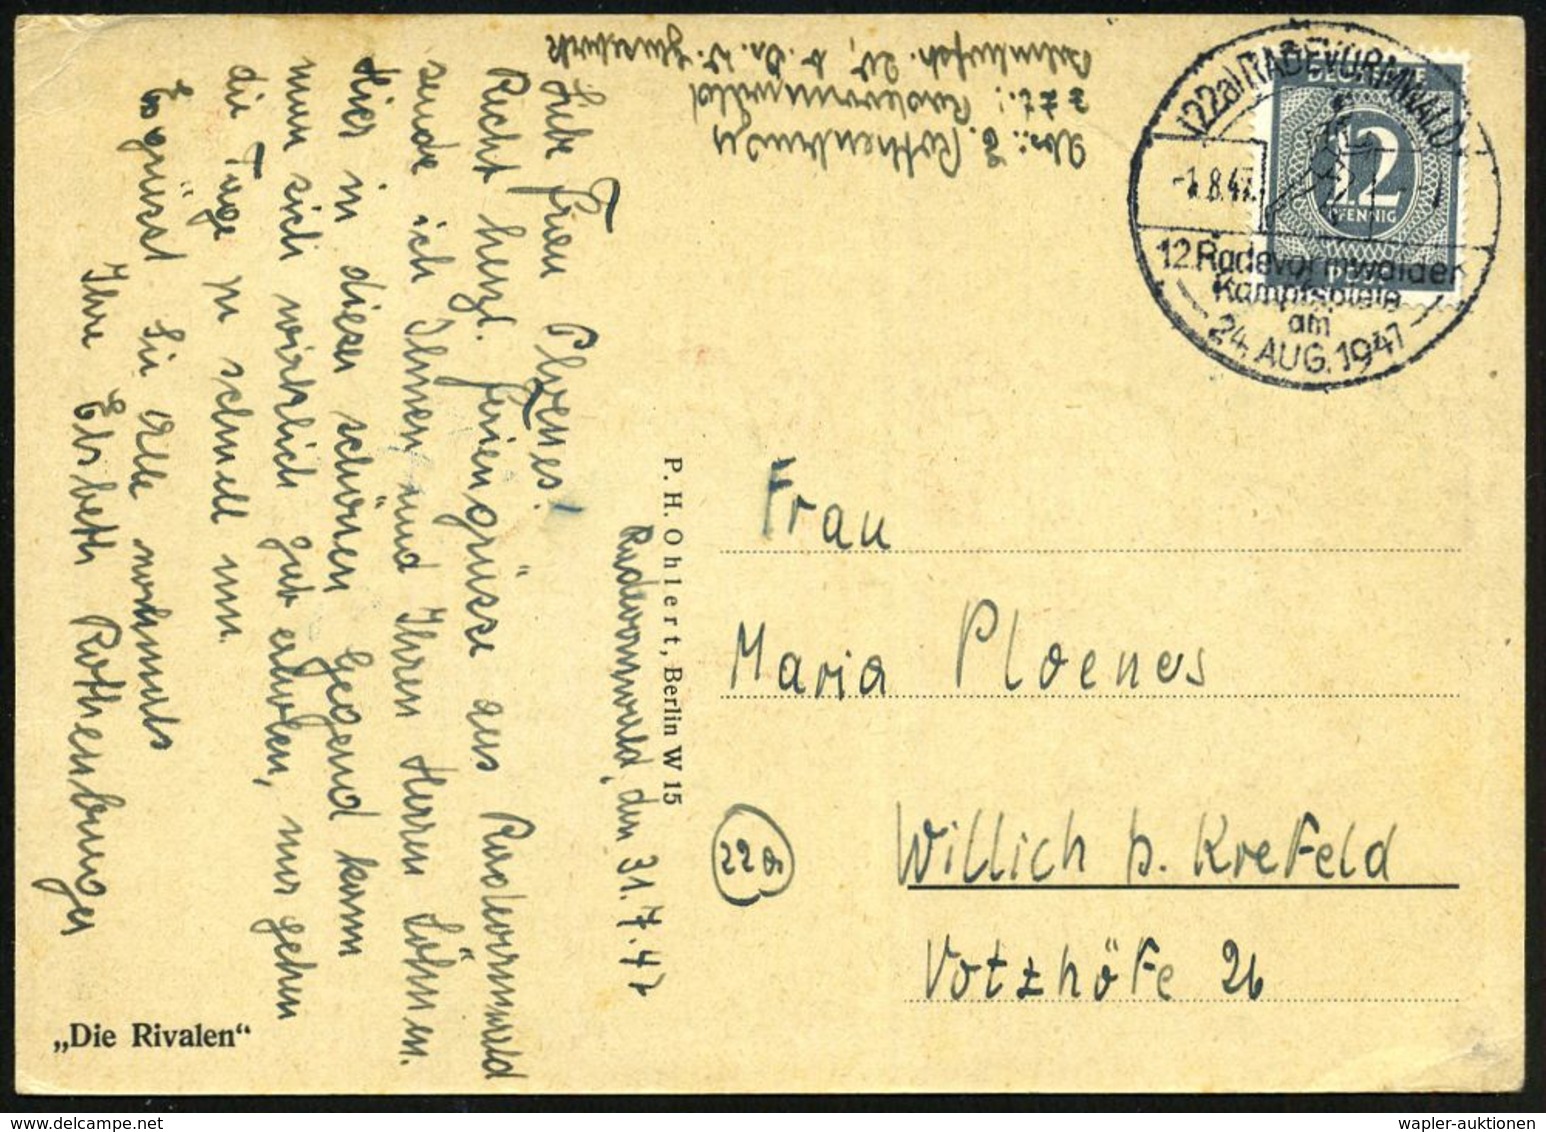 (22a) RADEVORMWALD
-1.8.47.
12. Radevormwalder
Kampfspiele
am
24. AUG. 1947
12
PFENNIG
Abs.: E. Rothenburger
z. Zt.: Radevormwald
Radevormwald, den 31.7.47
Liebe Frau Ploenes!
Recht herzl. Feriengrüsse aus Radevormwald
sende ich Ihnen und Ihren Herren Söhnen.
Hier in dieser schönen Gegend kann
man sich wirklich gut erholen, nur gehen
die Tage zu schnell um.
Es grüsst Sie alle nochmals
Ihre Elsbeth Rothenburger
P. H. Ohlert, Berlin W 15
Frau
Maria Ploenes
22a
Willich b. Krefeld
Votzhöfe 26
„Die Rivalen“
wapler-auktionen